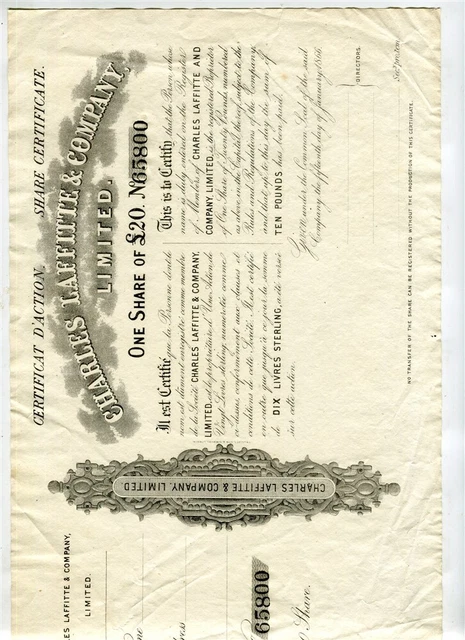 CERTIFICAT D'ACTION. SHARE CERTIFICATE.
CHARLES LAFFITTE & COMPANY,
LIMITED.
ONE SHARE OF £20. No 65800
Il est Certifié que la Personne dont le
nom est dûment enregistré comme membre
de la Société CHARLES LAFFITTE & COMPANY,
LIMITED, est le propriétaire d'Une Action de
Vingt Livres sterling, numérotée comme
ci-dessus, conformément aux Statuts et
conditions de cette Société. Il est certifié
en outre que jusqu'à ce jour la somme
de DIX LIVRES STERLING, a été versée
sur cette action.
This is to Certify that the Person whose
name is duly entered on the Register
of Members of CHARLES LAFFITTE AND
COMPANY, LIMITED, is the registered Proprietor
of One Share of Twenty Pounds, numbered
as above, in the Capital thereof, subject to the
Rules and Regulations of the Company,
and that up to this day the sum of
TEN POUNDS has been paid.
Given under the Common Seal of the said
Company the fifteenth day of January 1866
DIRECTORS.
Sec. pro tem.
NO TRANSFER OF THIS SHARE CAN BE REGISTERED WITHOUT THE PRODUCTION OF THIS CERTIFICATE.
CHARLES LAFFITTE & COMPANY, LIMITED
ES LAFFITTE & COMPANY,
LIMITED.
me
ress
65800
0 Share.